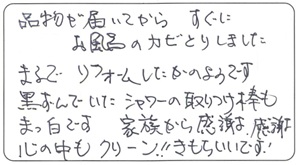 品物が届いてから すぐに
お風呂のカビとりしました
まるで リフォームしたかのようです
黒ずんでいた シャワーの取りつけ棒も
まっ白です 家族から感謝、感謝
心の中も クリーン!! きもちいいです!